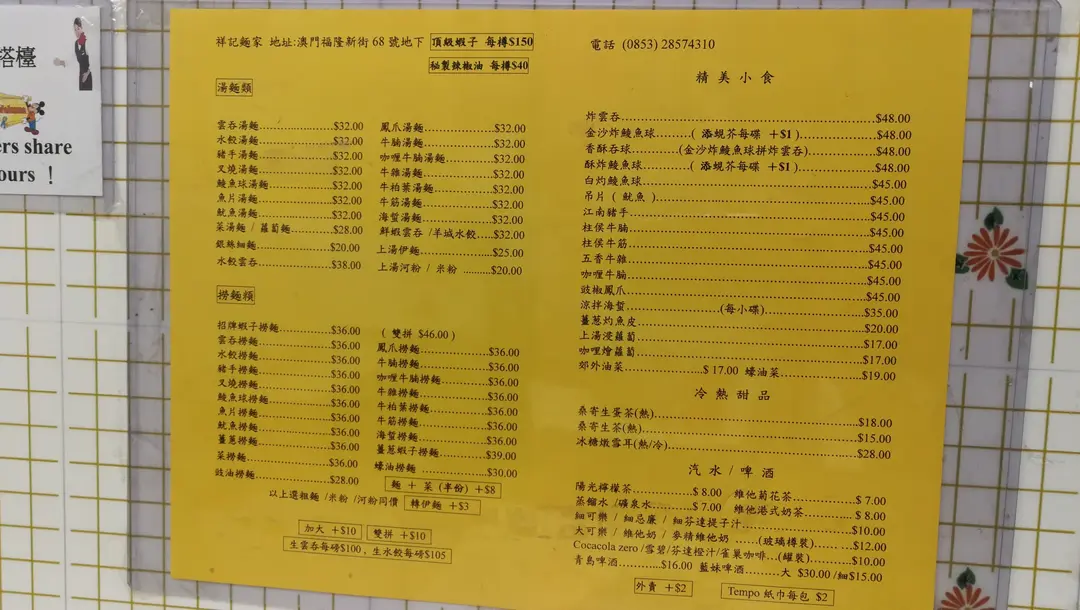 塔檯
ers share
ours !
祥記麵家 地址:澳門福隆新街 68 號地下 頂級蝦子 每樽$150
秘製辣椒油 每樽$40
湯麵類
雲吞湯麵 $32.00
水餃湯麵 $32.00
豬手湯麵 $32.00
叉燒湯麵 $32.00
鯪魚球湯麵 $32.00
魚片湯麵 $32.00
魷魚湯麵 $32.00
菜湯麵 / 蘿蔔麵 $28.00
銀絲細麵 $20.00
水餃雲吞 $38.00
鳳爪湯麵 $32.00
牛腩湯麵 $32.00
咖喱牛腩湯麵 $32.00
牛雜湯麵 $32.00
牛柏葉湯麵 $32.00
牛筋湯麵 $32.00
海蜇湯麵 $32.00
鮮蝦雲吞 /羊城水餃 $32.00
上湯伊麵 $25.00
上湯河粉 / 米粉 $20.00
撈麵類
招牌蝦子撈麵 $36.00
雲吞撈麵 $36.00
水餃撈麵 $36.00
豬手撈麵 $36.00
叉燒撈麵 $36.00
鯪魚球撈麵 $36.00
魚片撈麵 $36.00
魷魚撈麵 $36.00
薑蔥撈麵 $36.00
菜撈麵 $36.00
豉油撈麵 $28.00
( 雙拼 $46.00 )
鳳爪撈麵 $36.00
牛腩撈麵 $36.00
咖喱牛腩撈麵 $36.00
牛雜撈麵 $36.00
牛柏葉撈麵 $36.00
牛筋撈麵 $36.00
海蜇撈麵 $36.00
薑蔥蝦子撈麵 $39.00
蠔油撈麵 $30.00
麵 + 菜 (半份) +$8
以上選粗麵 /米粉 /河粉同價 轉伊麵 +$3
加大 +$10 雙拼 +$10
生雲吞每磅$100 , 生水餃每磅$105
電話 (0853) 28574310
精美小食
炸雲吞 $48.00
金沙炸鯪魚球 ( 添蜆芥每碟 +$1 ) $48.00
香酥吞球 (金沙炸鯪魚球拼炸雲吞) $48.00
酥炸鯪魚球 ( 添蜆芥每碟 +$1 ) $48.00
白灼鯪魚球 $45.00
吊片 ( 魷魚 ) $45.00
江南豬手 $45.00
柱侯牛腩 $45.00
柱侯牛筋 $45.00
五香牛雜 $45.00
咖喱牛腩 $45.00
豉椒鳳爪 $45.00
涼拌海蜇 (每小碟) $35.00
薑蔥灼魚皮 $20.00
上湯浸蘿蔔 $17.00
咖喱燴蘿蔔 $17.00
郊外油菜 $ 17.00 蠔油菜 $19.00
冷熱甜品
桑寄生蛋茶(熱) $18.00
桑寄生茶(熱) $15.00
冰糖燉雪耳(熱/冷) $28.00
汽水 / 啤酒
陽光檸檬茶 $ 8.00 維他菊花茶 $ 7.00
蒸餾水 /礦泉水 $ 7.00 維他港式奶茶 $ 8.00
細可樂 / 細忌廉 / 細芬達提子汁 $10.00
大可樂 / 維他奶 / 麥精維他奶 (玻璃樽裝) $12.00
Cocacola zero /雪碧/芬達橙汁/雀巢咖啡 (罐裝) $10.00
青島啤酒 $16.00 藍妹啤酒 大 $30.00 /細$15.00
外賣 +$2 Tempo 紙巾每包 $2